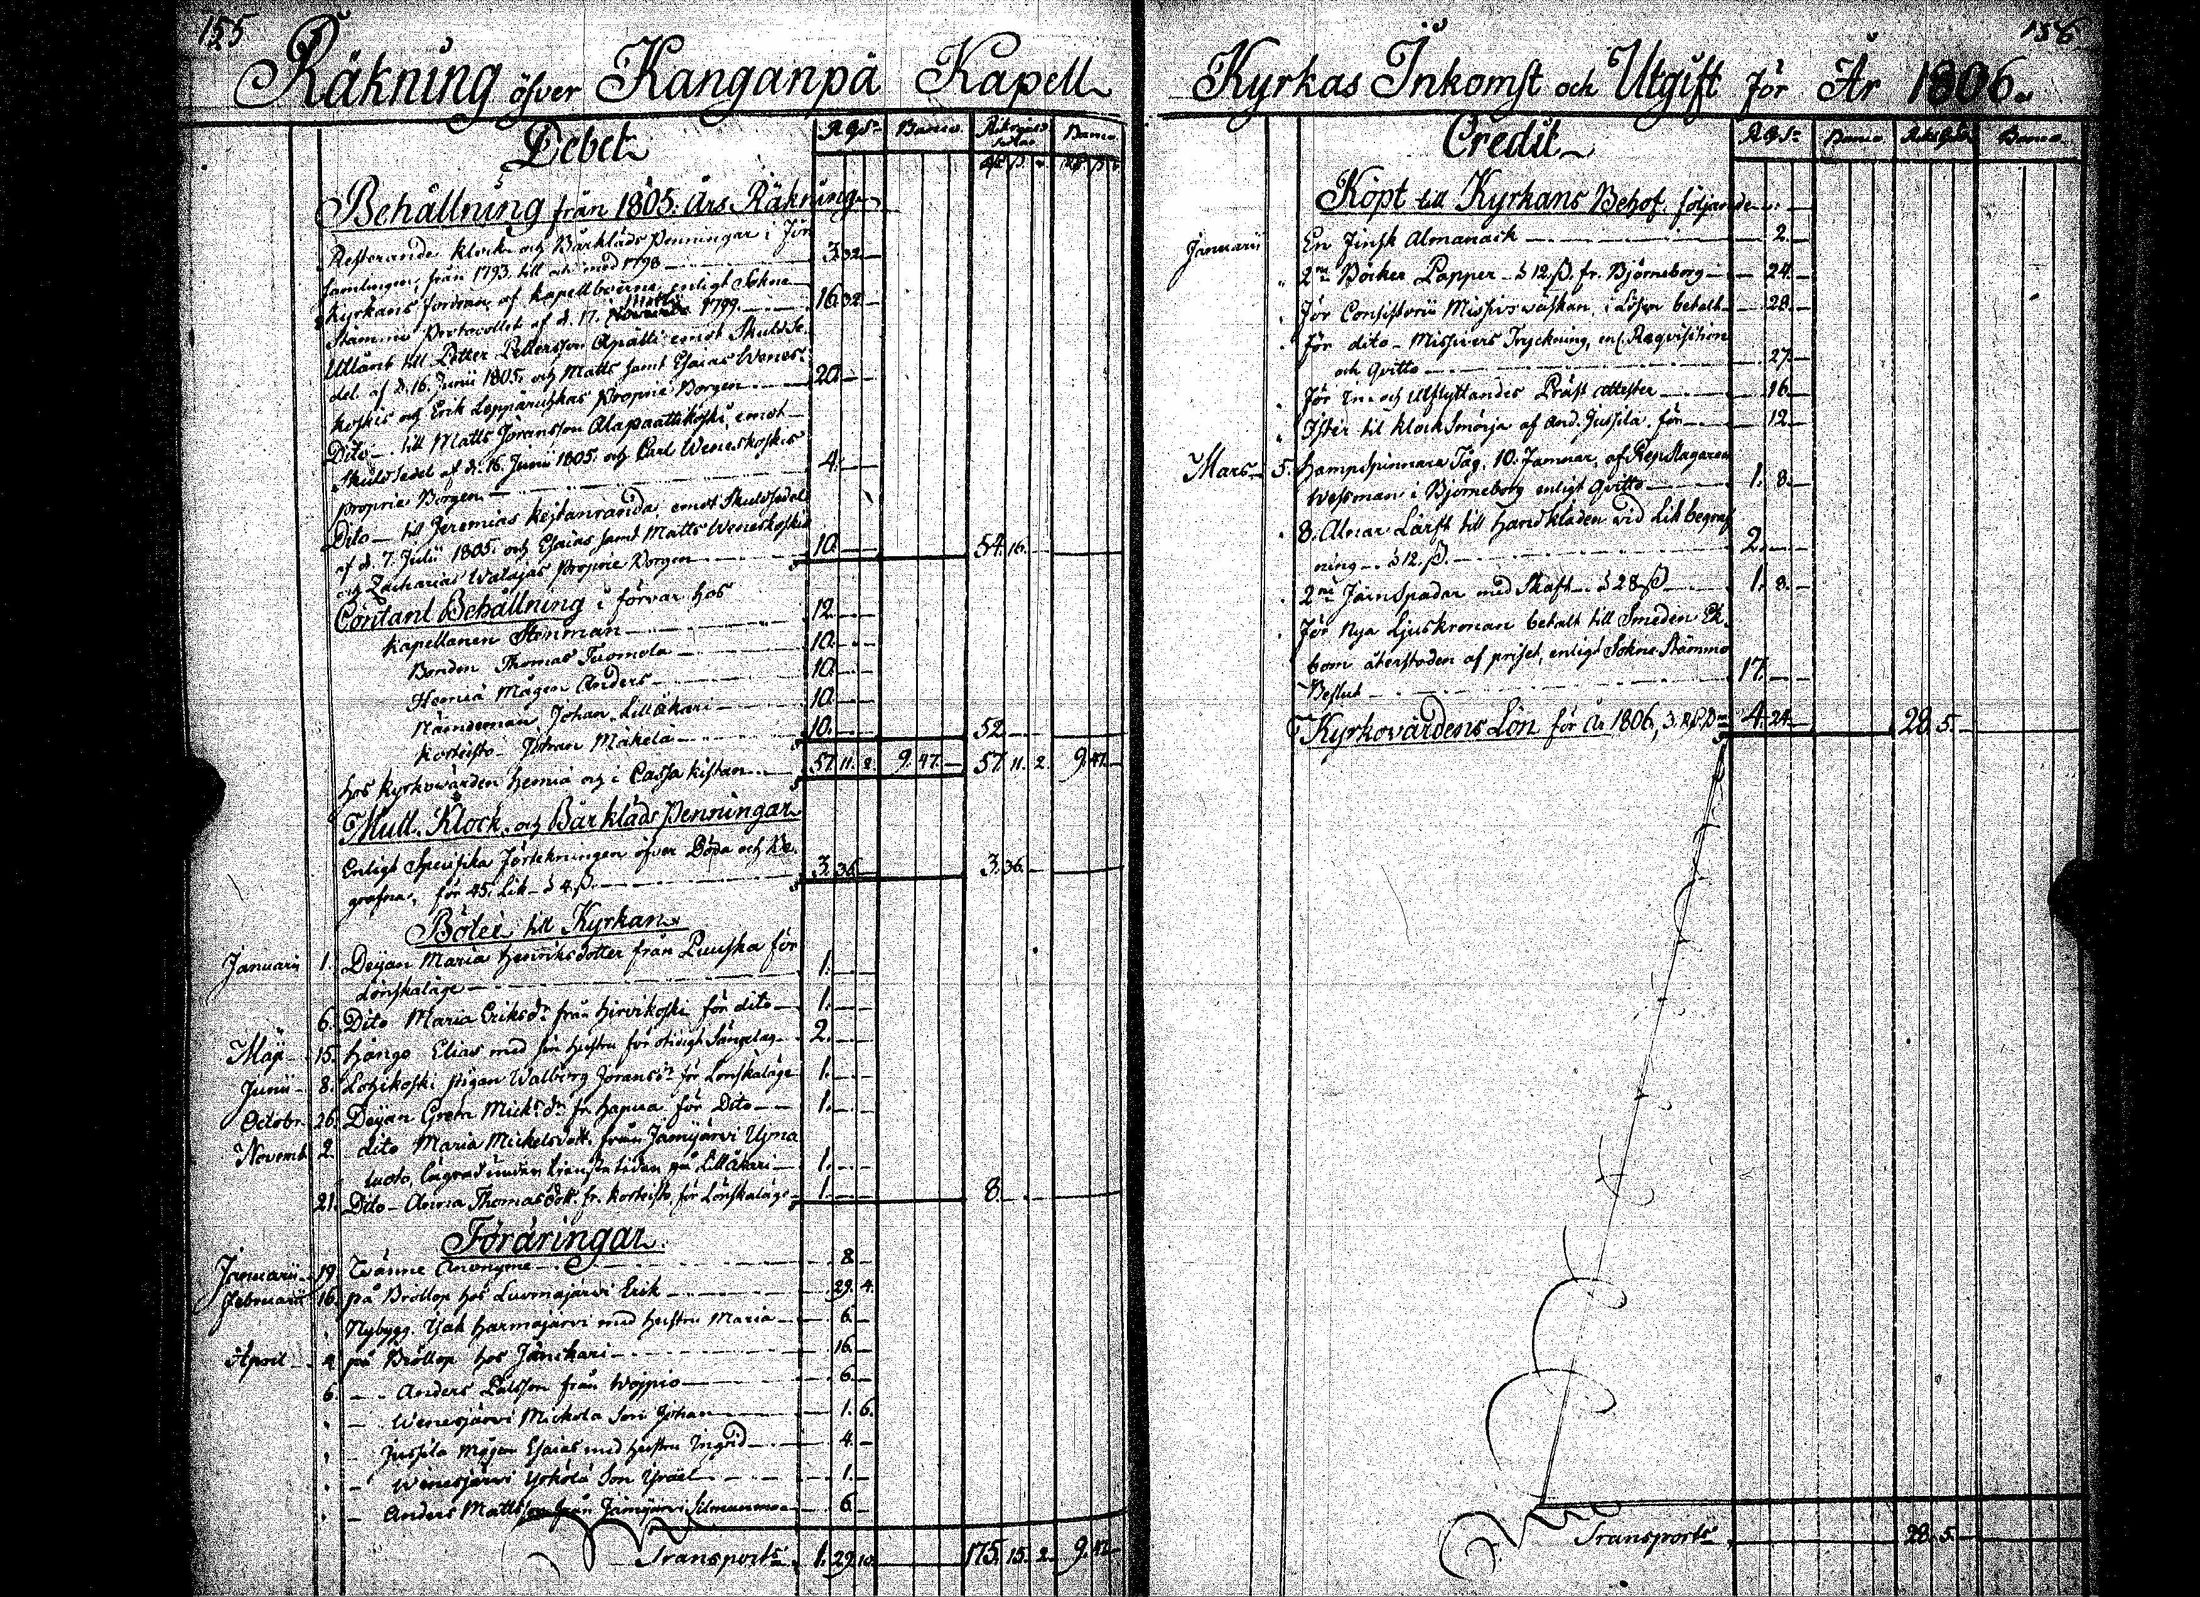 155
Räkning öfver Kanganpä Kapell
Debet
R.G.S. Banco Riksgäld Sedlar Banco
Behållning från 1805. års Räkning
Resterande klock- och Bårkläds Penningar i För
samlingen, från 1793. till och med 1798 3. 32.
Kyrkans fordran af kapellboerne enligt Sokne
Stämmo Protocollet af d. 17. 1799. 16. 32.
Utlånt till Petter Pettersson Apätti emot Skuldse
del af d. 16. Junii 1805. och Matts samt Esaias Wenes
koskis och Erik Leppäruhkas proprie Borgen 20.
Dito till Matts Joransson Alapaattikoski, emot
Skuldsedel af d. 16. Junii 1805. och Carl Weneskoskis
proprie Borgen 4.
Dito till Jeremias Kejtanranda, emot Skuldsedel
af d. 7. Julii 1805. och Esaias samt Matts Weneskoskis
och Zacharias Walajas proprie Borgen 10. 54. 16.
Contant Behållning i förvar hos
Kapellanen Stenman 12.
Bonden Thomas Tuomola 10.
Hemiä Mågen Anders 10.
Nämndeman Johan Lillåkari 10.
Korteisto Johan Mäkela 10. 52.
hos kyrkowärden Hemiä och i Cassa kistan 57. 11. 2. 9. 47. 57. 11. 2. 9. 47.
Mull- Klock- och Bårkläds Penningar
Enligt Specifika förtekningen öfver Döda och Be-
grafna, för 45. Lik à 4. ß. 3. 36. 3. 36.
Böter till Kyrkan
Januarii 1. Deijan Maria Henriksdotter från Puuska för
lönskaläge 1.
6. Dito Maria Eriksdr från Hirvikoski för dito 1.
Maji 15. Hångo Elias med sin hustru för otidigt Sängelag 2.
Junii 8. Lohikoski pigan Walborg Joransdr för Lönskaläge 1.
Octobr. 26. Deijan Greta Mickdr fr. Hapua för Dito 1.
Novemb. 2. dito Maria Mickelsdott. från Jämijärvi Ujna
luoto, lägrad under tjenstetiden på Lillåkari 1.
21. Dito Anna Thomasdott. fr. Korteisto, för Lönskaläge 1. 8.
Föräringar
Januarii 19. Twänne Anonyme 8.
Februarii 16. på Bröllop hos Luomajärvi Erik 29. 4.
Nybygg. Isak Harmajärvi med hustru Maria 6.
April 4. på Bröllop hos Jänikari 16.
6. Anders Pålsson från Wojpio 6.
Wenesjärvi Mickola Son Johan 1. 6.
Jussila Mågen Esaias med hustru Ingrid 4.
Wenesjärvi Yrkölä Son Israel 1.
Anders Mattsson från Jämijärvi 6.
Transport 1. 29. 10. 175. 15. 2. 9. 47.
156
Kyrkas Inkomst och Utgift för År 1806.
Credit
R.G.S. Banco Riksgäld Banco
Köpt till Kyrkans Behof följande
Januarii En Finsk Almanack 2.
2ne Böcker Papper à 12. ß. fr. Björneborg 24.
För Consistorii Missivväskan, i Lösen betalt 28.
För dito Missivers Tryckning, enl. Reqvisition
och Qvitto 27.
För In- och Utflyttandes Präst attester 16.
Ister til klock Smörja af And. Jussila för 12.
Mars 5. Hampspinnare Tåg. 10. Famnar, af Repslagaren
Wessman i Björneborg enligt Qvitto 1. 8.
8. Alnar Lärft till Handkläden vid Likbegraf
ning à 12. ß. 2.
2ne Järnspadar med Skaft à 28 ß 1. 8.
För Nya Ljuskronan betalt till Smeden Ek-
bom återstoden af priset, enligt Sokne Stämmo
Beslut 17.
Kyrkovärdens Lön för År 1806, 3. R.D. 4. 24. 28. 5.
Transport 28. 5.